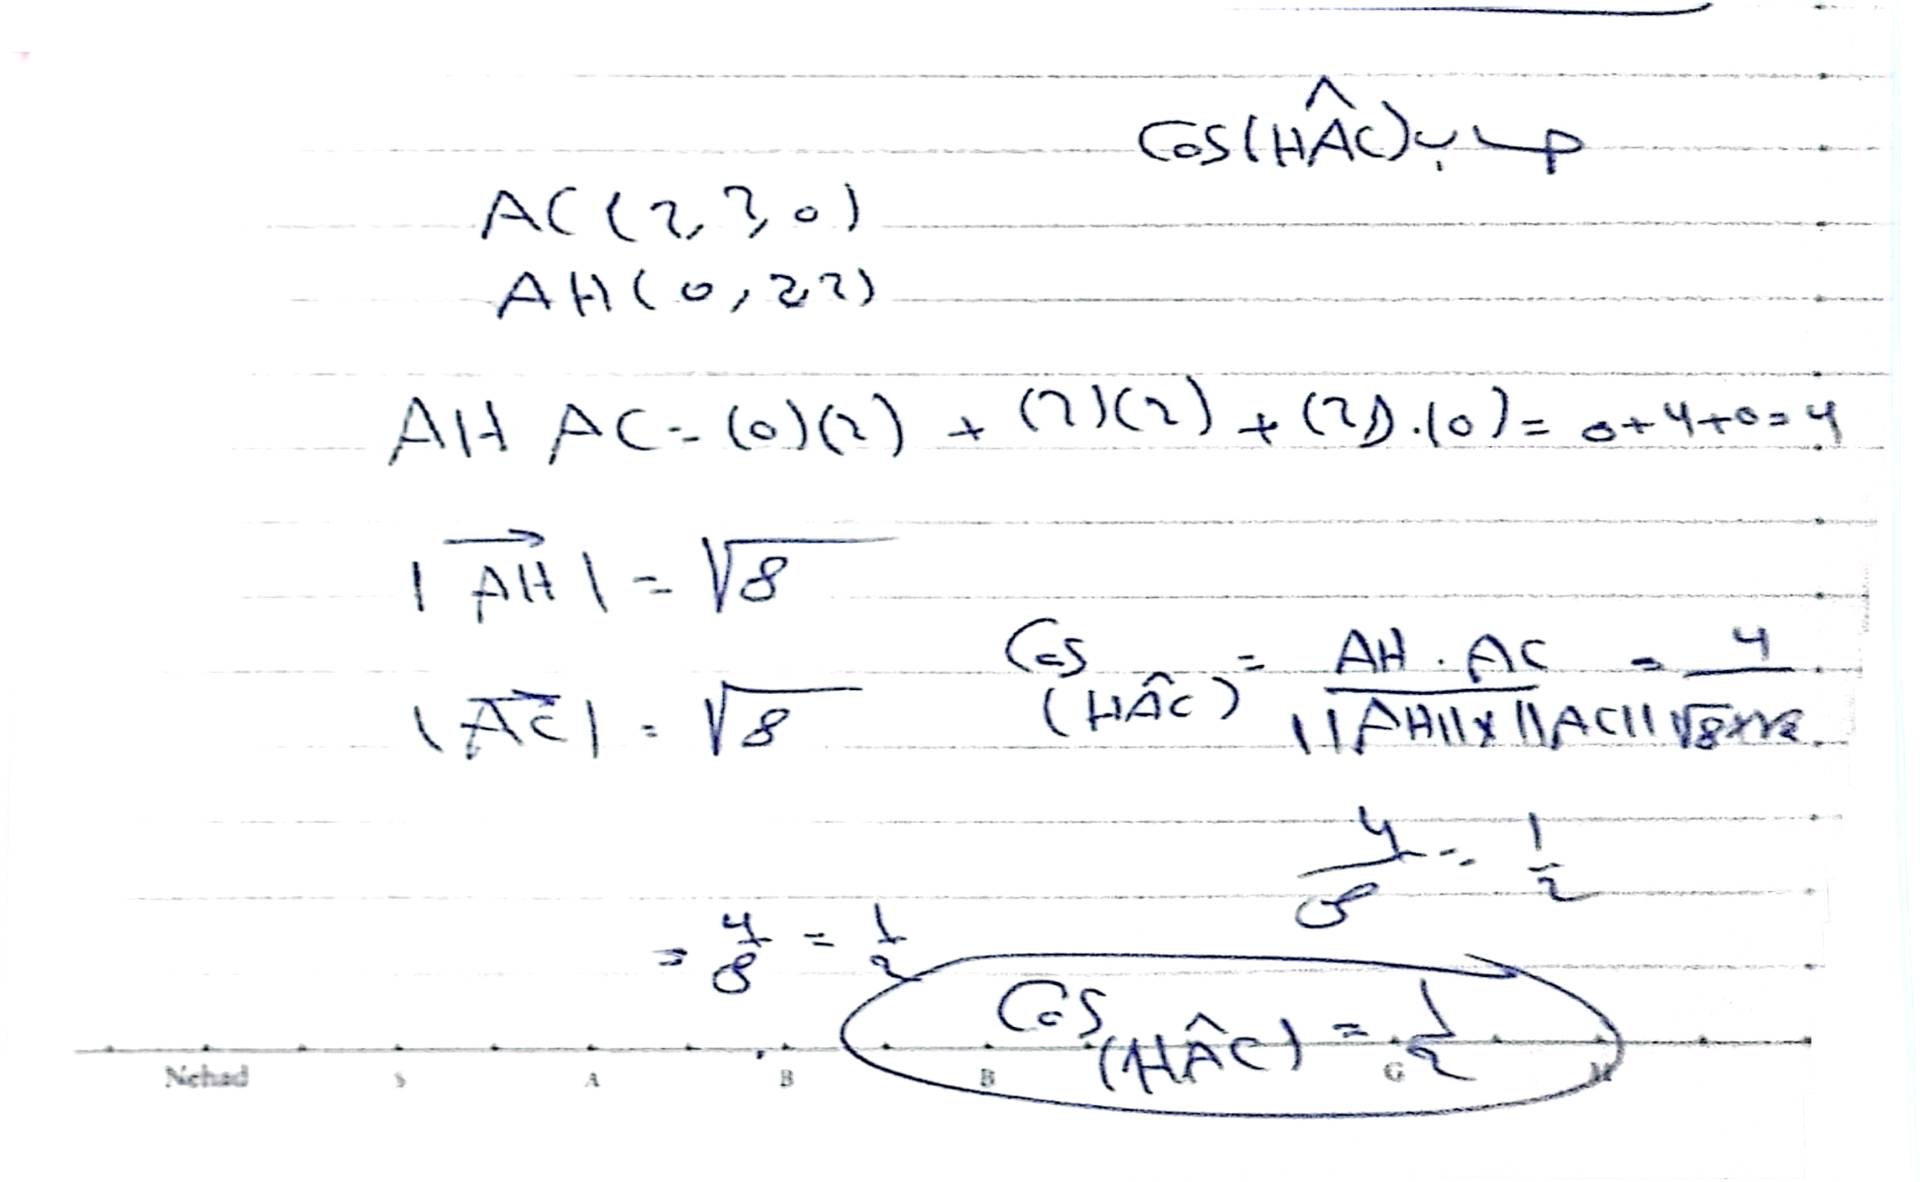 حساب Cos(HÂC)
AC(2, 2, 0)
AH(0, 2, 2)
AH AC = (0)(2) + (2)(2) + (2).(0) = 0+4+0=4
|AH| = √8
Cos (HÂC) = AH . AC / ||AH||x||AC|| = 4 / √8x√8
|AC| = √8
4/8 = 1/2
= 4/8 = 1/2
Cos (HÂC) = 1/2
Nehad S A B B G M